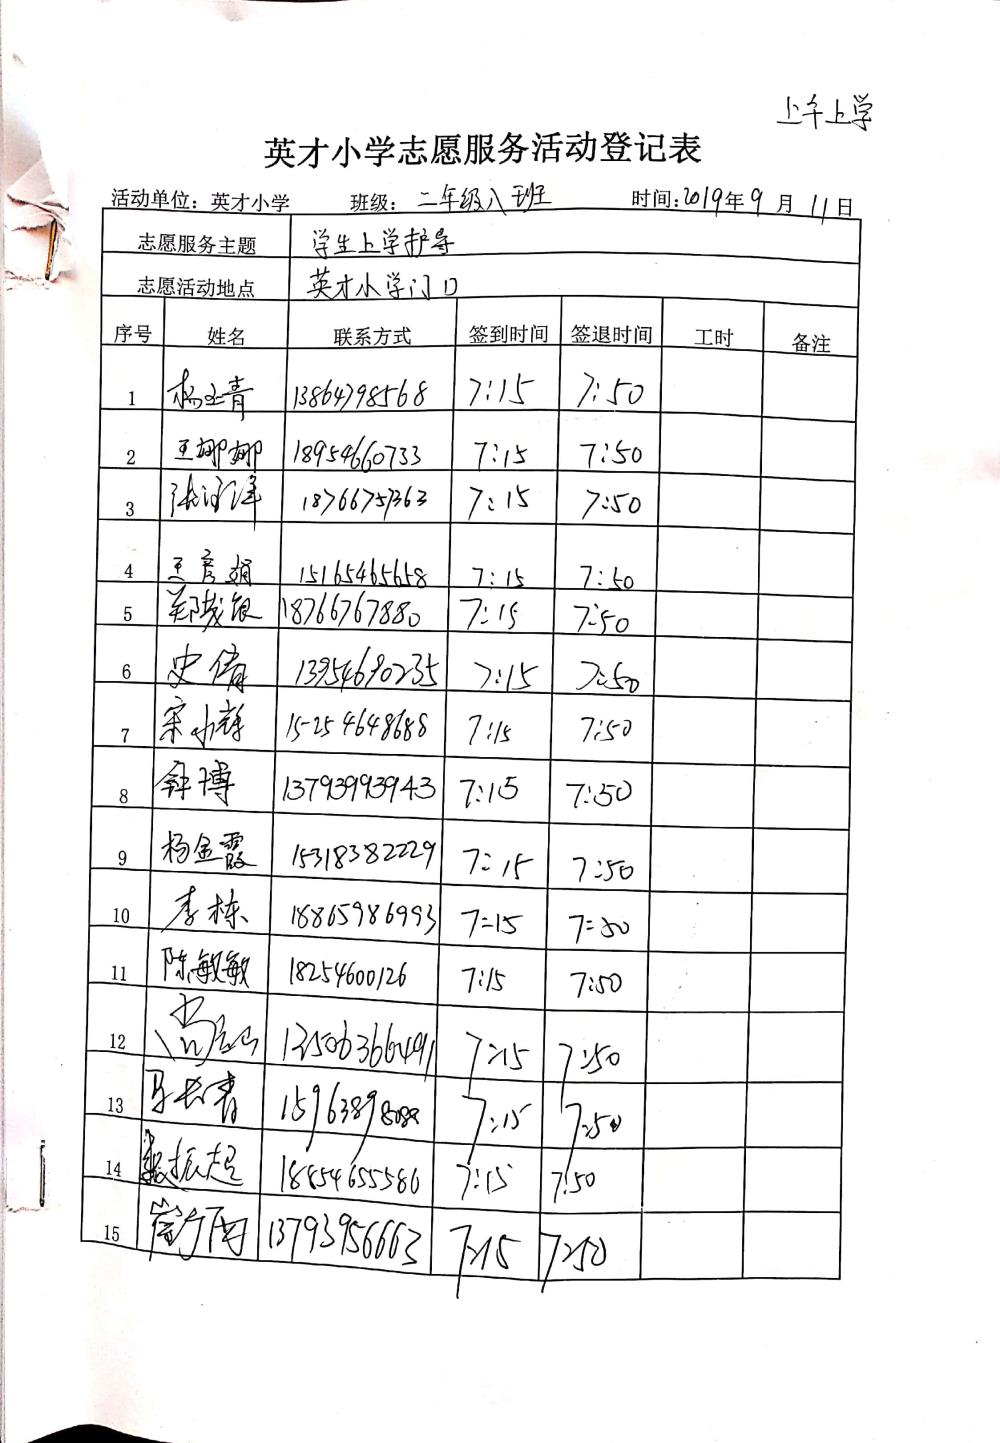 上午上学
英才小学志愿服务活动登记表
活动单位：英才小学 班级：二年级八班 时间：2019年9月11日
志愿服务主题 学生上学护导
志愿活动地点 英才小学门口
序号 姓名 联系方式 签到时间 签退时间 工时 备注
1 杨玉青 13864798568 7:15 7:50
2 王娜娜 18954660733 7:15 7:50
3 18766757363 7:15 7:50
4 王彦娟 15165465658 7:15 7:50
5 郑茂银 18766767880 7:15 7:50
6 史倩 13954690235 7:15 7:50
7 宋小辉 15254648688 7:15 7:50
8 钟博 13793993943 7:15 7:50
9 杨金霞 15318382229 7:15 7:50
10 李栋 18865986993 7:15 7:50
11 陈敏敏 18254600126 7:15 7:50
12 13506366491 7:15 7:50
13 马长青 7:15 7:50
14 振超 18854655586 7:15 7:50
15 13793956663 7:15 7:50